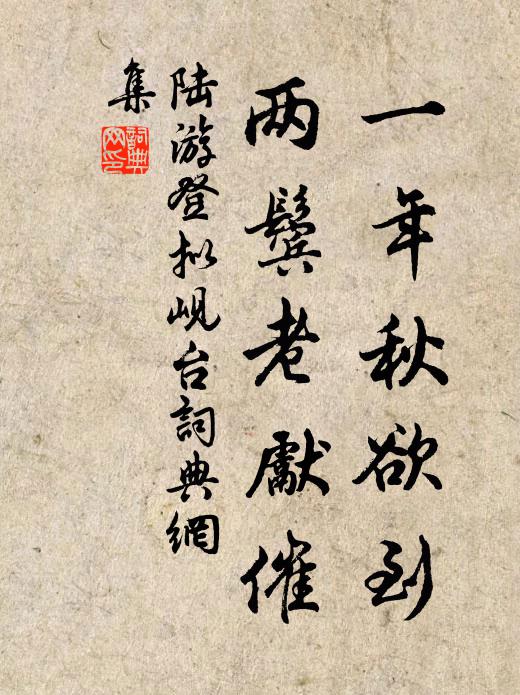 一年秋欲到
两鬓老獻催
陆游登拟岘台詞典網
集
詞典
网印